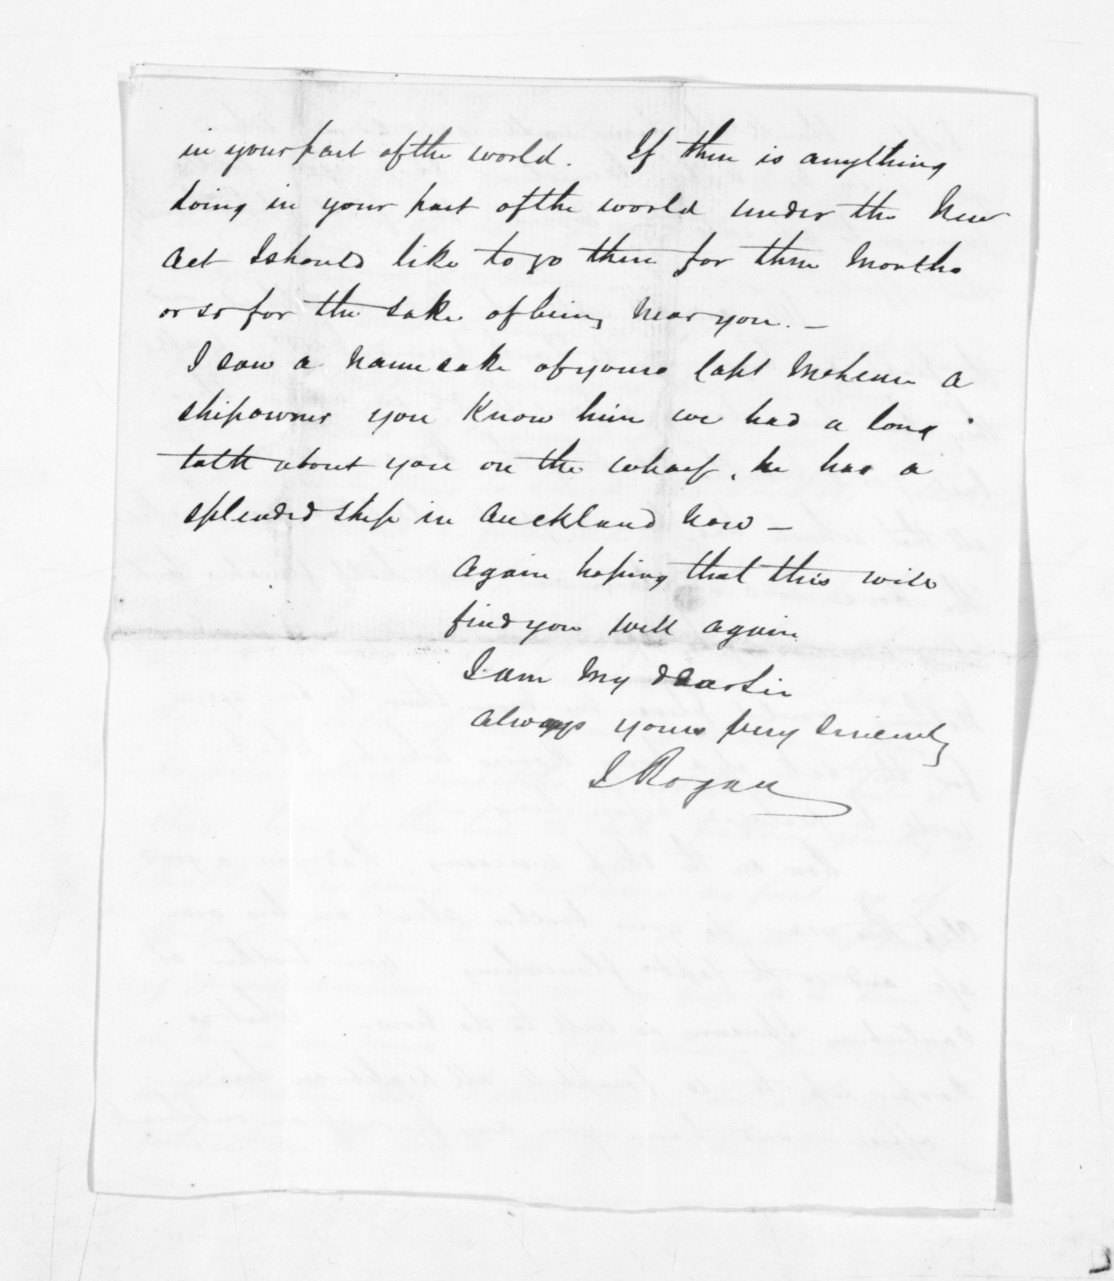 in your part of the world. If there is anything
doing in your part of the world under the New
Act I should like to go there for three Months
or so for the sake of being Near you. —
I saw a Namesake of yours Capt McLean a
shipowner you Know him we had a long
talk about you on the wharf, he has a
splended ship in Auckland Now —
Again hoping that this will
find you well again
I am My dear Sir
always yours very Sincerely
J Rogan